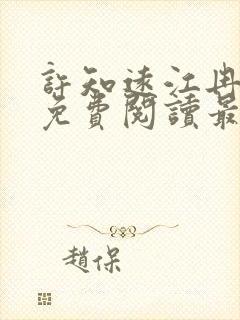 許知遠江冉
免費閱讀最
趙保